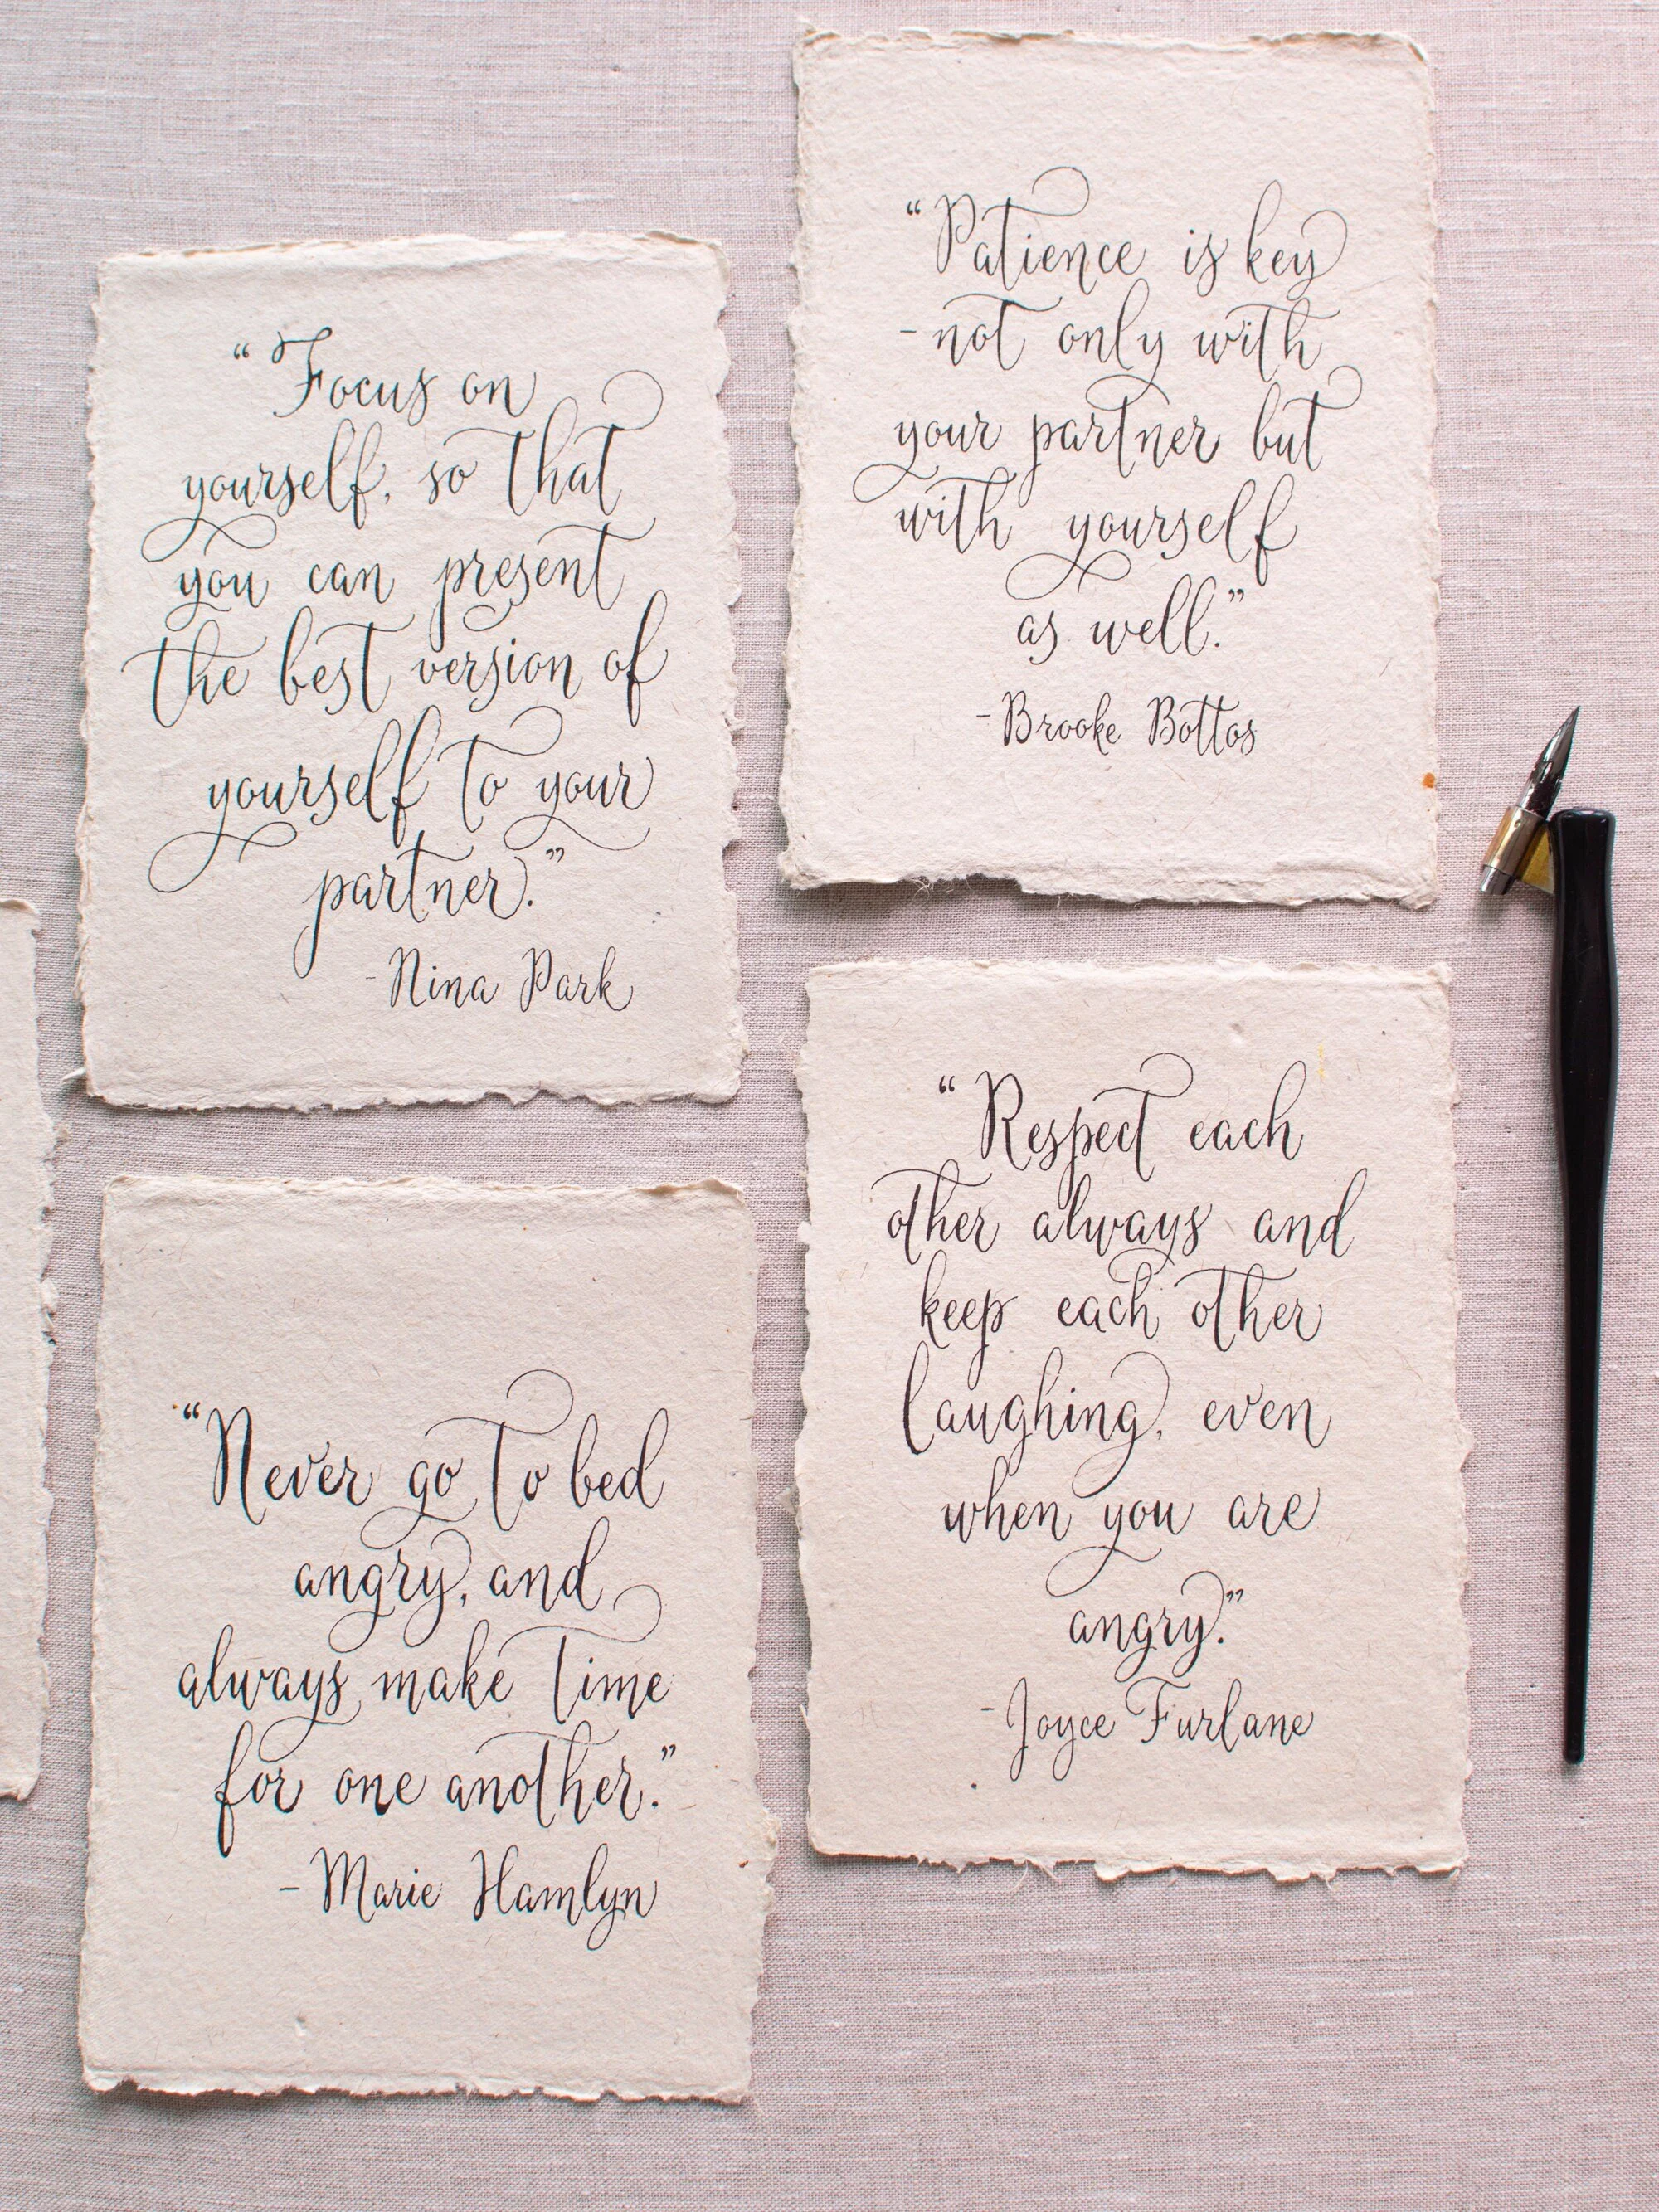 “Focus on
yourself, so that
you can present
the best version of
yourself to your
partner.”
-Nina Park
“Patience is key
-not only with
your partner but
with yourself
as well.”
-Brooke Bottos
“Never go to bed
angry, and
always make time
for one another.”
-Marie Hamlyn
“Respect each
other always and
keep each other
laughing, even
when you are
angry.”
-Joyce Furlane